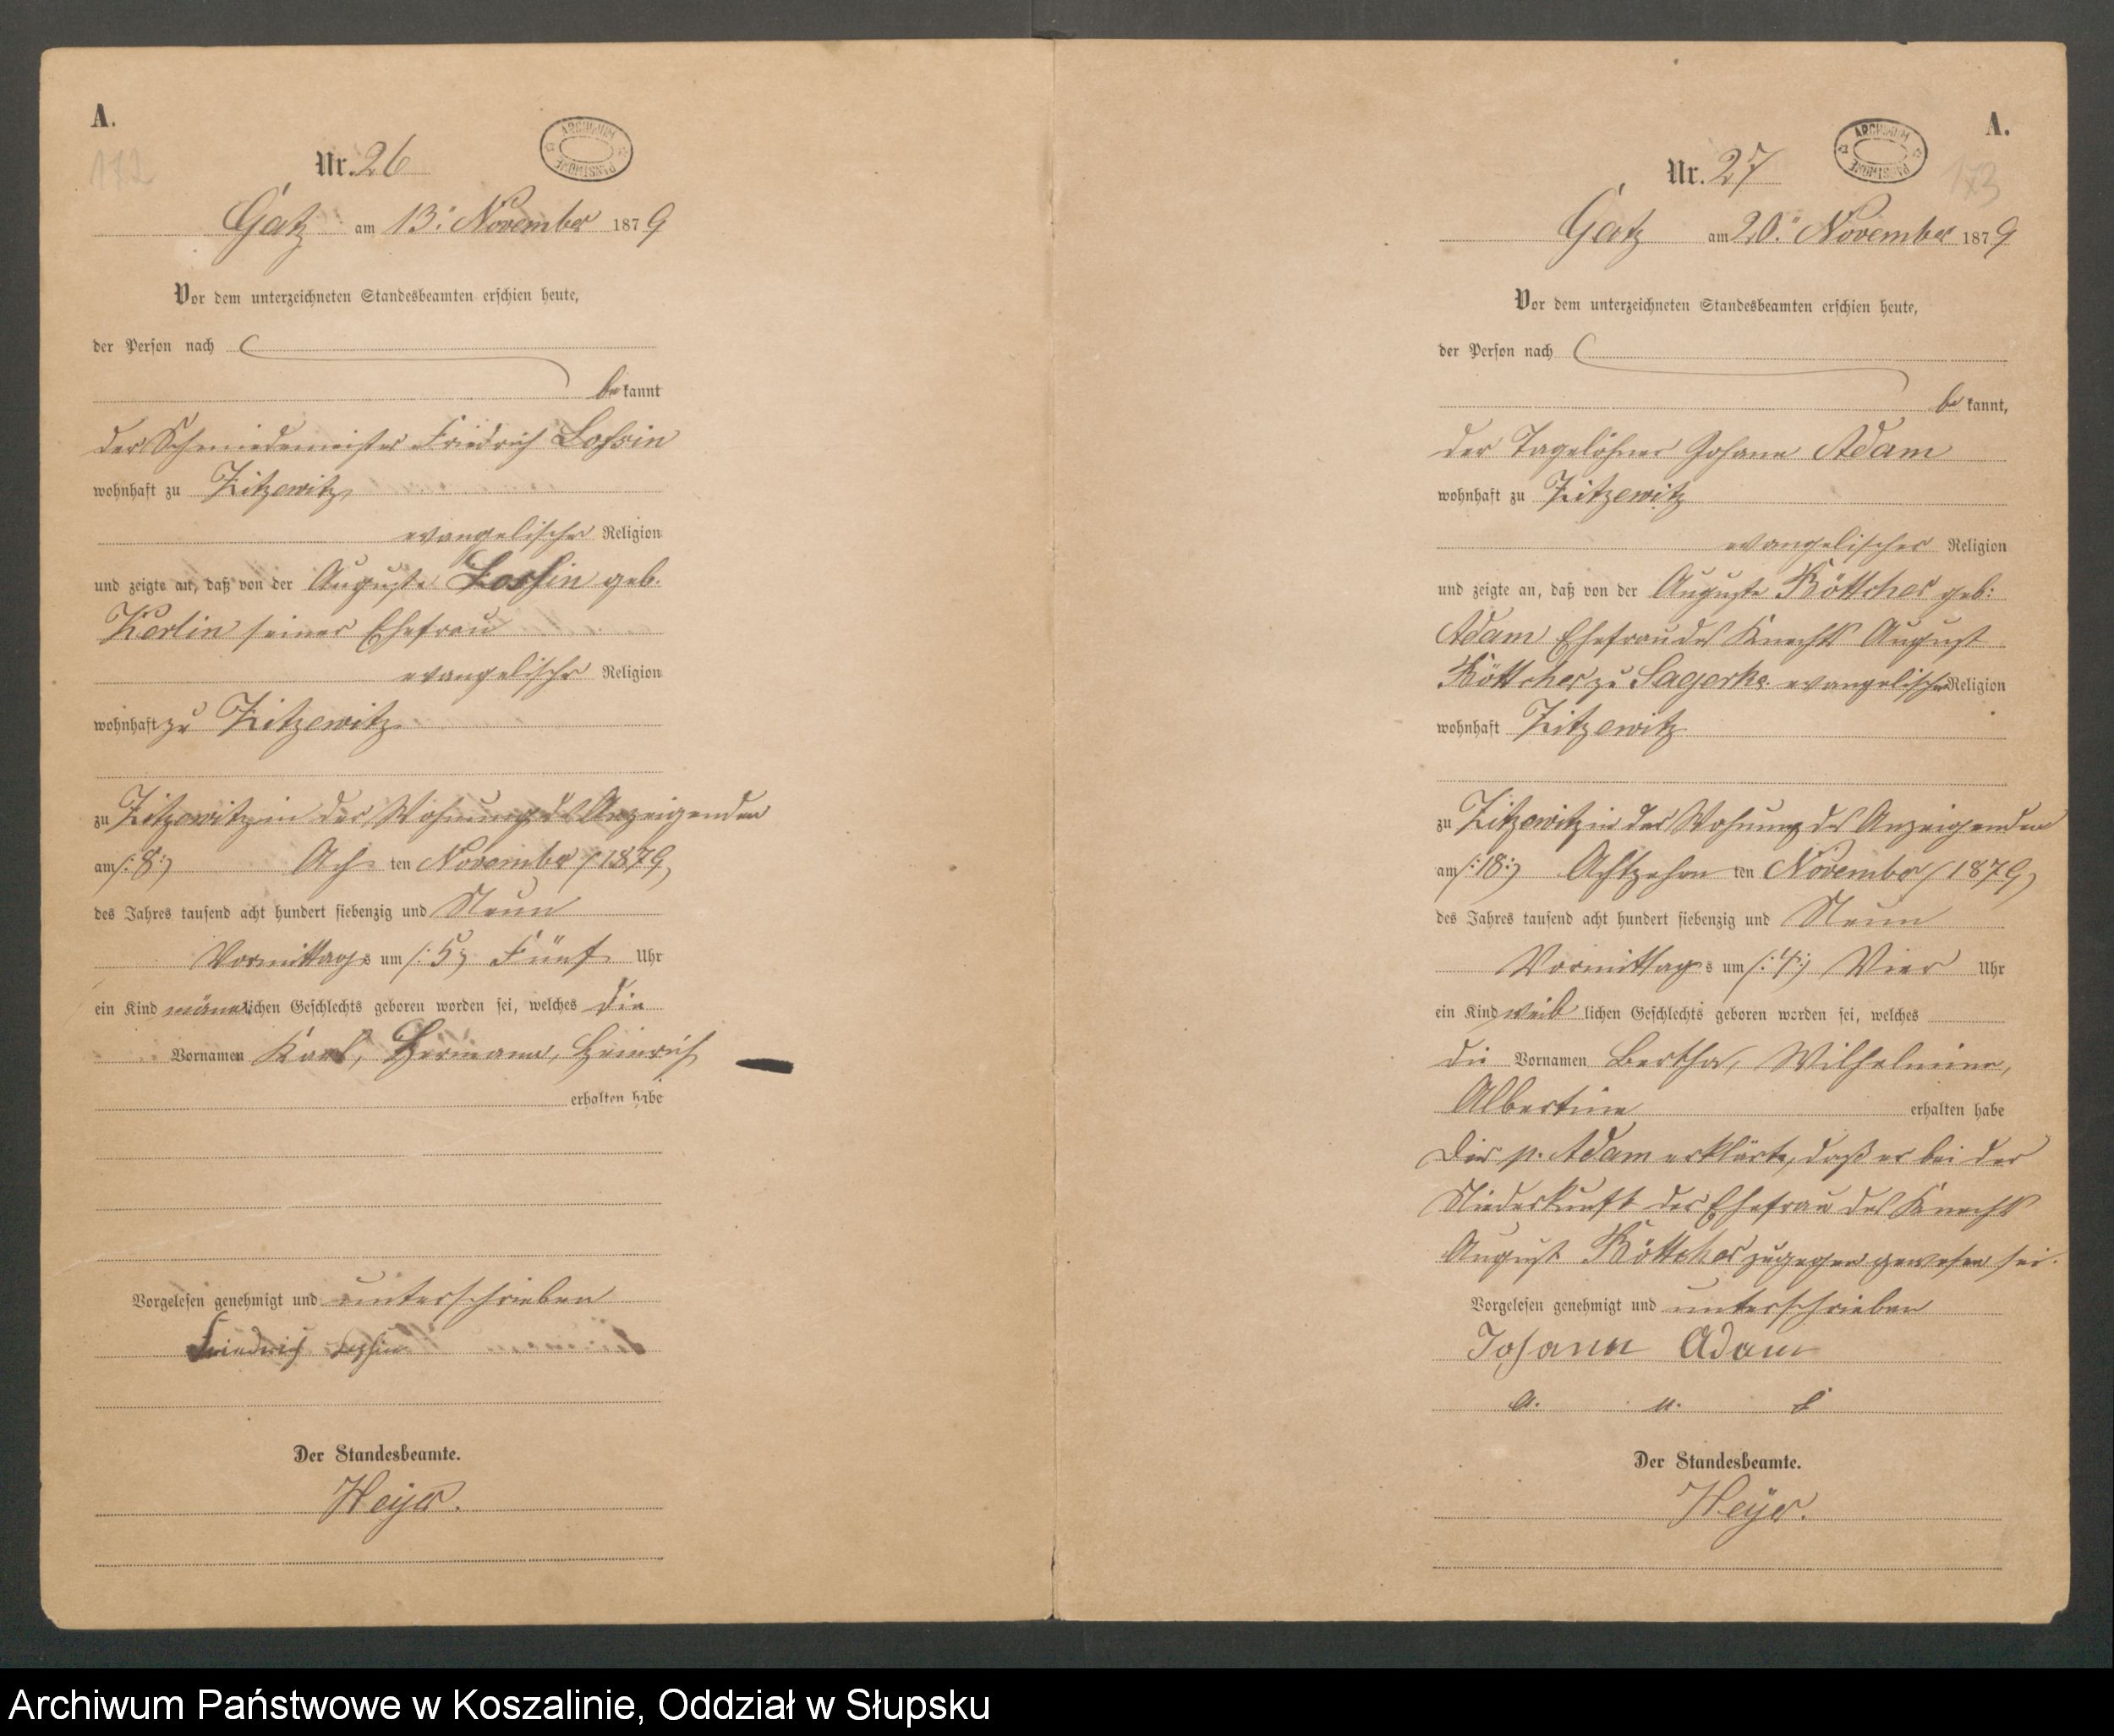 A.
172
Nr. 26
ARCHIWUM PAŃSTWOWE
Gatz am 13. November 1879
Vor dem unterzeichneten Standesbeamten erschien heute,
der Person nach
bekannt
der Schmiedemeister Friedrich Lossin
wohnhaft zu Zitzewitz
evangelischer Religion
und zeigte an, daß von der Auguste Lossin geb.
Kerlin seiner Ehefrau
evangelischer Religion
wohnhaft zu Zitzewitz
zu Zitzewitz in der Wohnung des Anzeigenden
am /:8:/ Ach ten November /1879/
des Jahres tausend acht hundert siebenzig und Neun
Vormittags um /:5:/ Fünf Uhr
ein Kind männlichen Geschlechts geboren worden sei, welches die
Vornamen Karl, Hermann, Heinrich
erhalten habe
Vorgelesen genehmigt und unterschrieben
Friedrich Lossin
Der Standesbeamte.
Heyer.
A.
173
Nr. 27
ARCHIWUM PAŃSTWOWE
Gatz am 20. November 1879
Vor dem unterzeichneten Standesbeamten erschien heute,
der Person nach
bekannt,
der Tagelöhner Johann Adam
wohnhaft zu Zitzewitz
evangelischer Religion
und zeigte an, daß von der Auguste Böttcher geb:
Adam Ehefrau des Knechts August
Böttcher zu Sagerke evangelischer Religion
wohnhaft Zitzewitz
zu Zitzewitz in der Wohnung des Anzeigenden
am /:18:/ Achtzehn ten November /1879/
des Jahres tausend acht hundert siebenzig und Neun
Vormittags um /:4:/ Vier Uhr
ein Kind weiblichen Geschlechts geboren worden sei, welches
die Vornamen Bertha, Wilhelmine,
Albertine erhalten habe
Der p. Adam erklärte, daß er bei der
Niederkunft der Ehefrau des Knechts
August Böttcher zugegen gewesen sei.
Vorgelesen genehmigt und unterschrieben
Johann Adam
a. u. s
Der Standesbeamte.
Heyer.
Archiwum Państwowe w Koszalinie, Oddział w Słupsku